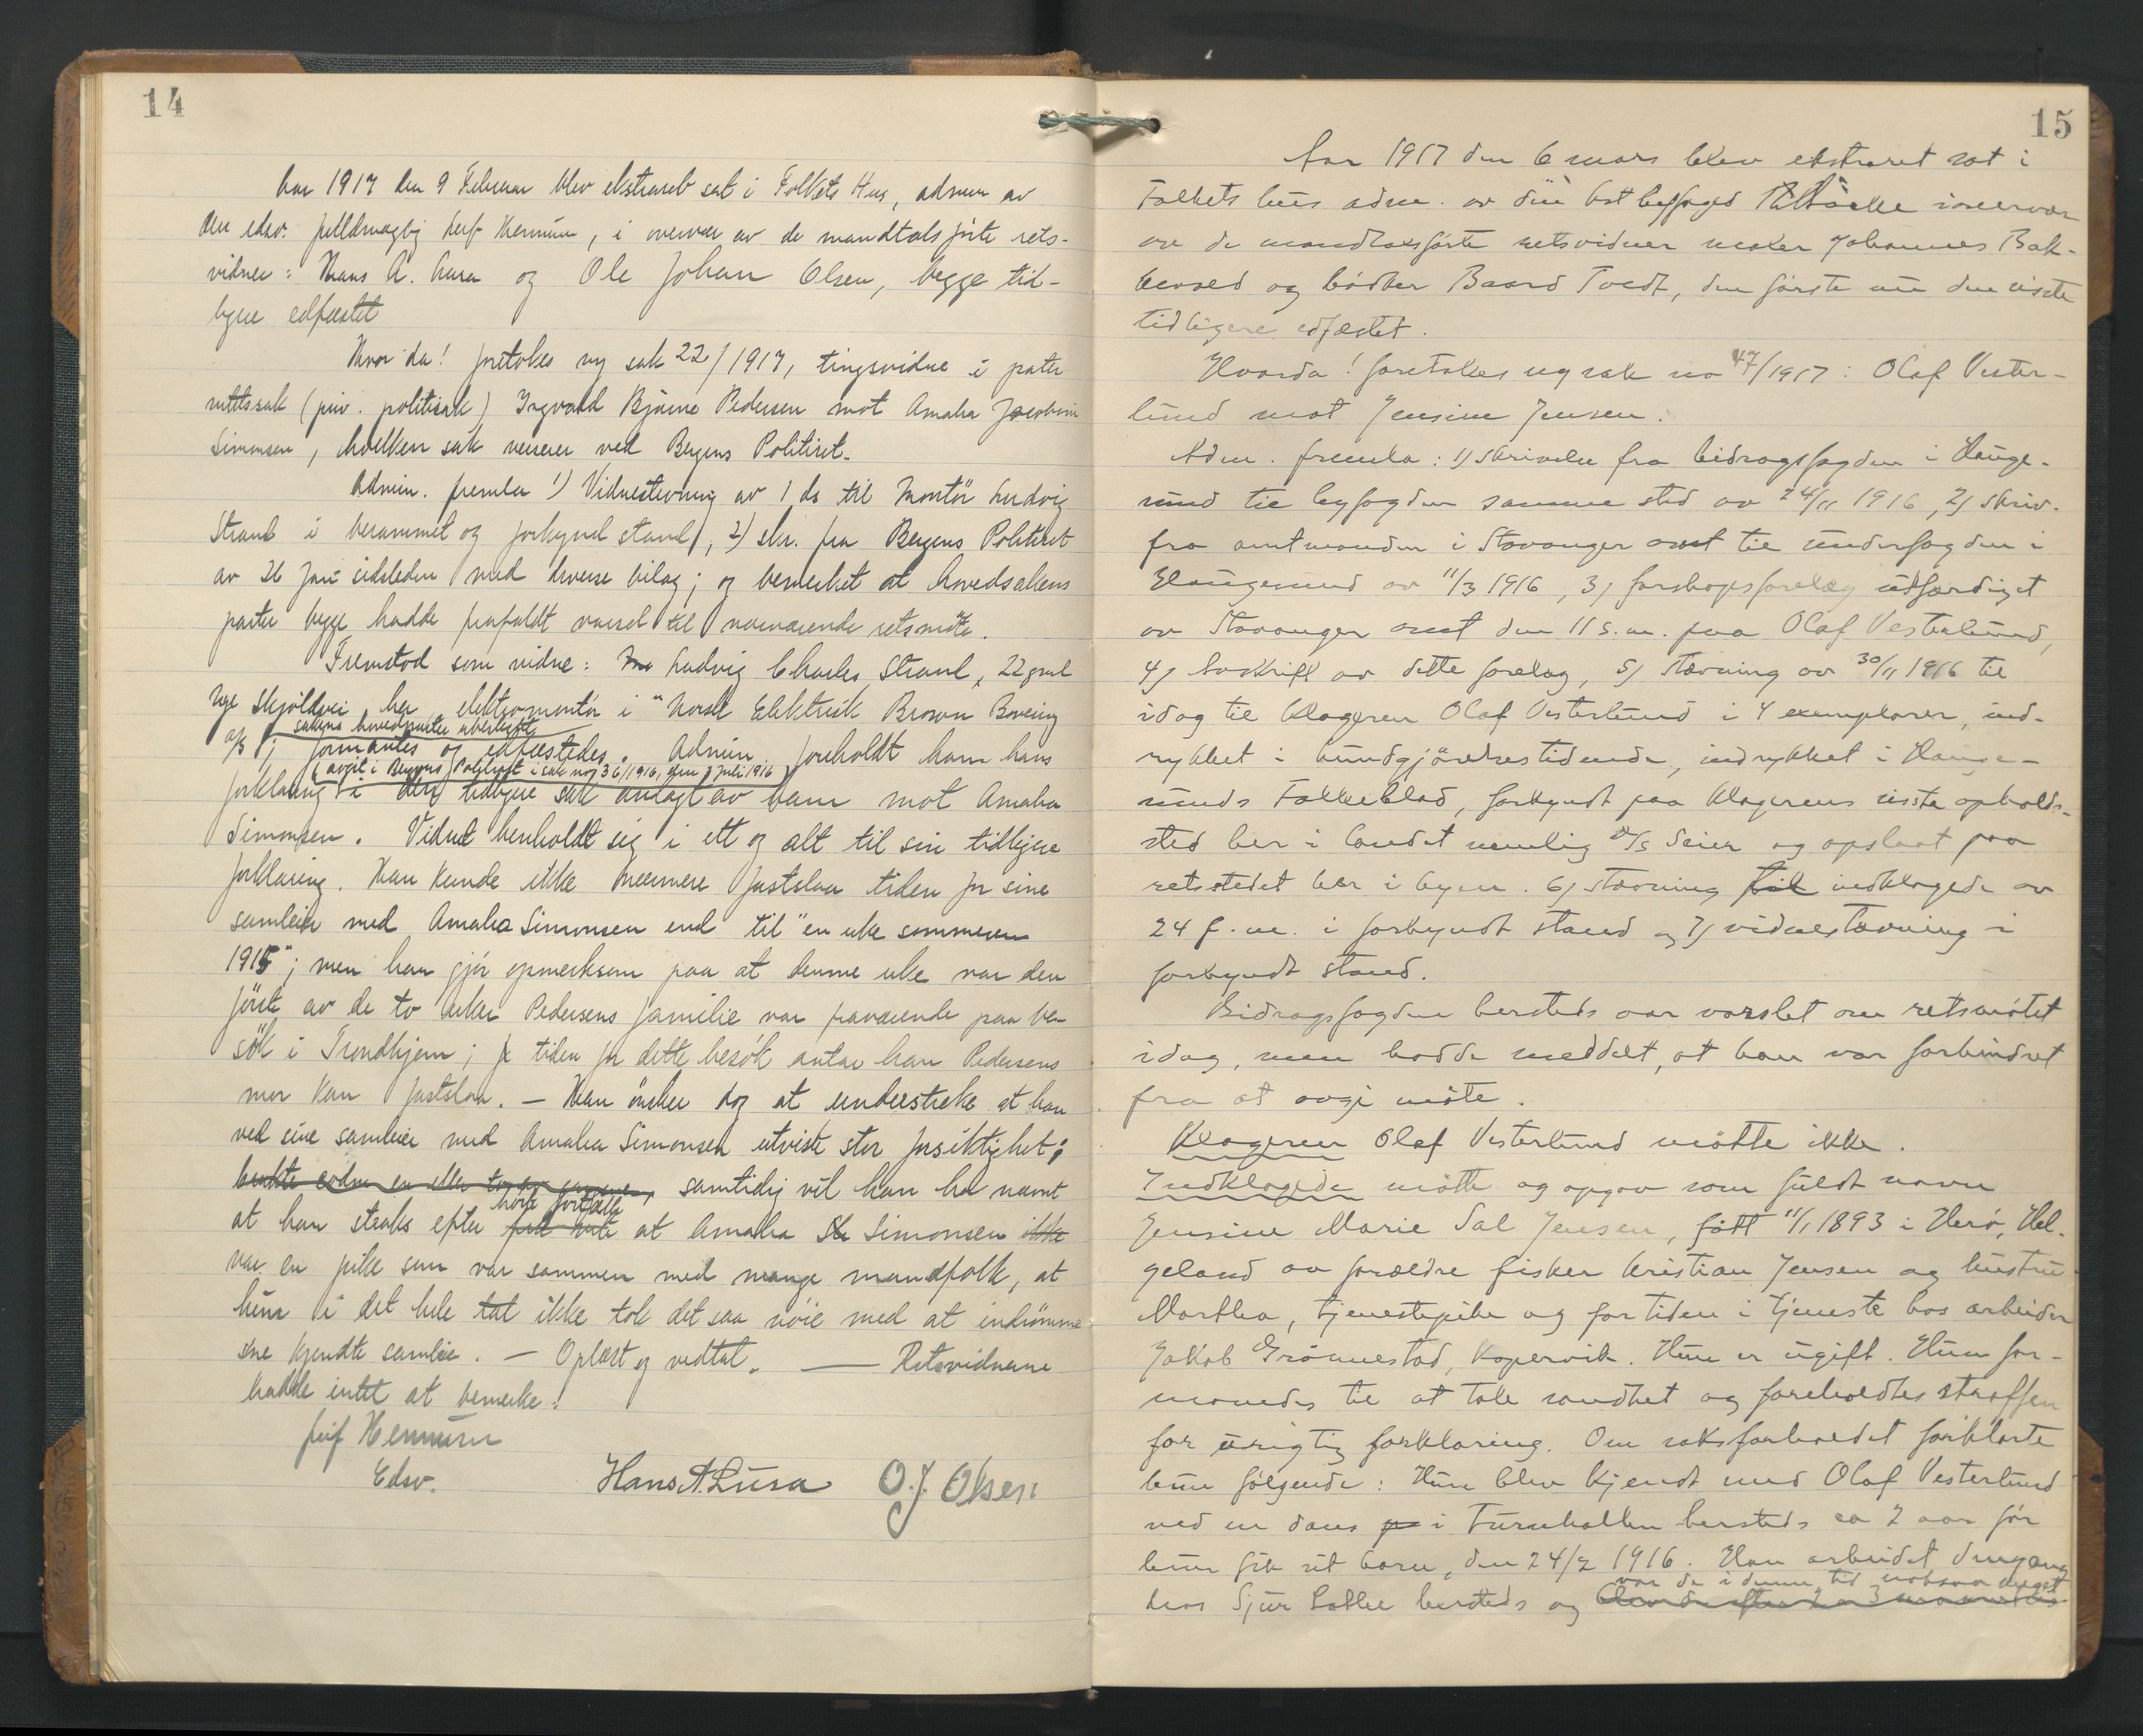 14
Aar 1917 den 9 Februar blev ekstraret sat i Folkets Hus, admin av
den edsv. fuldmægtig Leif Hermun, i overvær av de mandtalsførte rets-
vidner: Hans A. Lura og Ole Johan Olsen, begge tid-
ligere edfæstet
Hvor da! foretokes ny sak 22/1917, tingsvidne i pater
nitetssak (priv. politisak) Ingvald Bjarne Pedersen mot Amalia Jacobine
Simonsen, hvilken sak verserer ved Bergens Politiret.
Admin. fremla 1) Vidnestevning av 1 ds til Montør Ludvig
Strand i berammet og forkyndt stand, 2) skr. fra Bergens Politiret
av 26 jan sidstleden med diverse bilag; og bemerket at hovedsakens
parter begge hadde frafaldt varsel til nærværende retsmøte.
Fremstod som vidne: Ludvig Charles Strand, 22 gml
Nye Skjoldvei her elektromontør i "Norsk Elektrisk Brown Boveing
sakens hovedparter ubeslegtet
a/s; formantes og edfæstedes. Admin foreholdt ham hans
avgit i Bergens Politiret i sak no 36/1916, den 7 juli 1916
forklaring i den tidligere sak anlagt av ham mot Amalia
Simonsen. Vidnet henholdt sig i ett og alt til sin tidligere
forklaring. Han kunde ikke nærmere fastslaa tiden for sine
samleier med Amalia Simonsen end til "en uke sommeren
1915"; men han gjør opmerksom paa at denne uke var den
første av de to uker Pedersens familie var fraværende paa be-
søk i Trondhjem; tiden for dette besøk antar han Pedersens
mor kan fastslaa. – Han ønsker dog at understreke at han
ved sine samleier med Amalia Simonsen utviste stor forsiktighet;
samtidig vil han ha nævnt
hørte fortælle
at han straks efter at Amalia Simonsen ikke
var en pike som var sammen med mange mandfolk, at
hun i det hele tat ikke tok det saa nøie med at indrømme
sine kjendte samleie. – Oplæst og vedtat. — Retsvidnene
hadde intet at bemerke.
Leif Hermun
Edsv.
Hans A. Lura O.J. Olsen
15
Aar 1917 den 6 mars blev ekstraret sat i
Folkets hus adm. av den kst byfoged i overvær
av de mandtalsførte retsvidner maler Johannes Bak-
kevold og bødker Baard Tvedt, den første nu den siste
tidligere edfæstet.
Hvorda! foretokes ny sak no 47/1917: Olaf Vester-
lund mot Jensine Jensen.
Adm. fremla: 1) skrivelse fra bidragsfogden i Hauge-
sund til byfogden samme sted av 24/11 1916, 2) skriv.
fra amtmanden i Stavanger amt til underfogden i
Haugesund av 11/3 1916, 3) farskapsforelæg utfærdiget
av Stavanger amt den 11 s.m. paa Olaf Vesterlund,
4) avskrift av dette forelæg, 5) stævning av 30/11 1916 til
idag til klageren Olaf Vesterlund i 4 exemplarer, ind-
rykket i kundgjørelsestidende, indrykket i Hauge-
sunds Folkeblad, forkyndt paa klagerens siste opholds-
sted her i landet nemlig D/S Seier og opslaat paa
retsstedet her i byen. 6) stævning til indklagede av
24 f.m. i forkyndt stand og 7) vidnestævning i
forkyndt stand.
Bidragsfogden hersteds var varslet om retsmøtet
idag, men hadde meddelt, at han var forhindret
fra at avgi møte.
Klageren Olaf Vesterlund møtte ikke.
Indklagede møtte og opgav som fuldt navn
Jensine Marie Sal Jensen, født 11/1 1893 i Herø, Hel-
geland av forældre fisker Kristian Jensen og hustru
Martha, tjenestepike og for tiden i tjeneste hos arbeider
Jakob Grønnestad, Kopervik. Hun er ugift. Hun for-
manedes til at tale sandhet og foreholdtes straffen
for urigtig forklaring. Om saksforholdet forklarte
hun følgende: Hun blev kjendt med Olaf Vesterlund
ved en dans i Turnhallen hersteds ca 2 aar før
hun fik sit barn, den 24/2 1916. Han arbeidet dengang
var de i denne tid noksaa meget
hos Sjur Lothe hersteds og